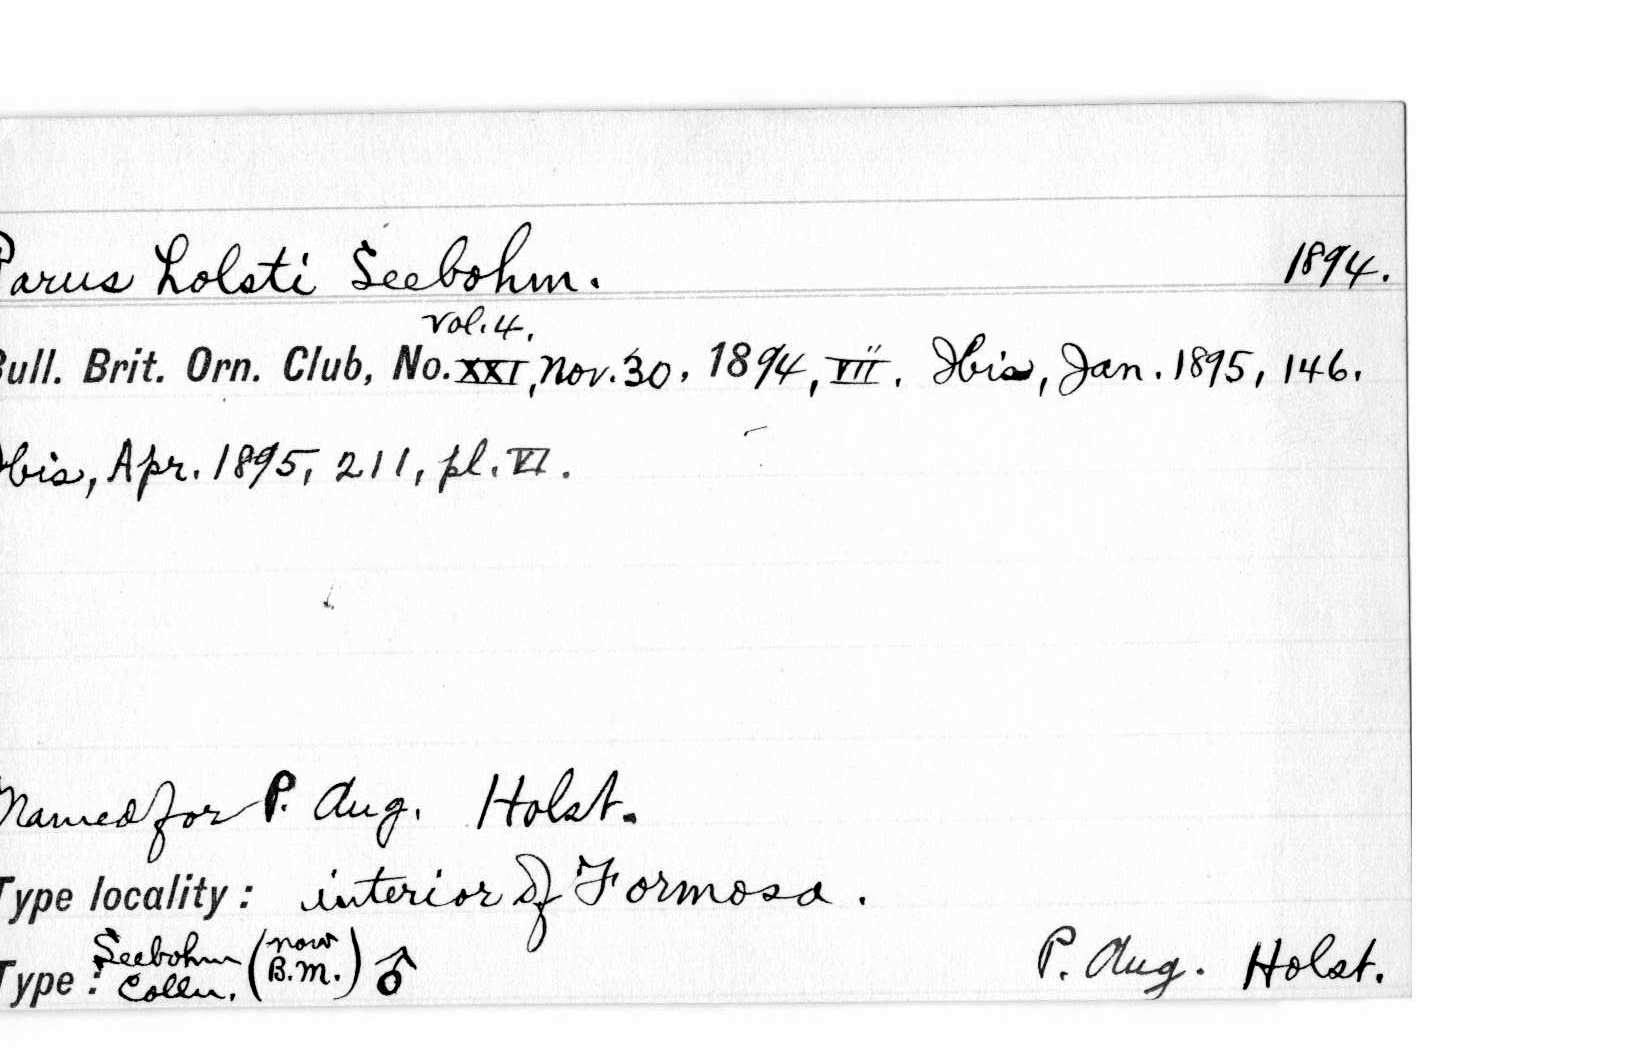 Parus holsti Seebohm. 1894.
vol. 4,
Bull. Brit. Orn. Club, No. XXI, Nov. 30, 1894, vii. Ibis, Jan. 1895, 146.
Ibis, Apr. 1895, 211, pl. VI.
Named for P. Aug. Holst.
Type locality: interior of Formosa.
Type: Seebohm Colln. (now B.M.) ♂ P. Aug. Holst.